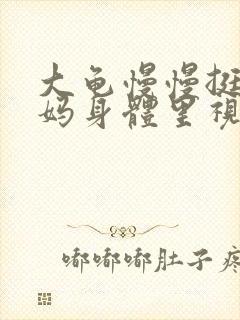 大龟慢慢挺
妈身體里視
嘟嘟嘟肚子疼